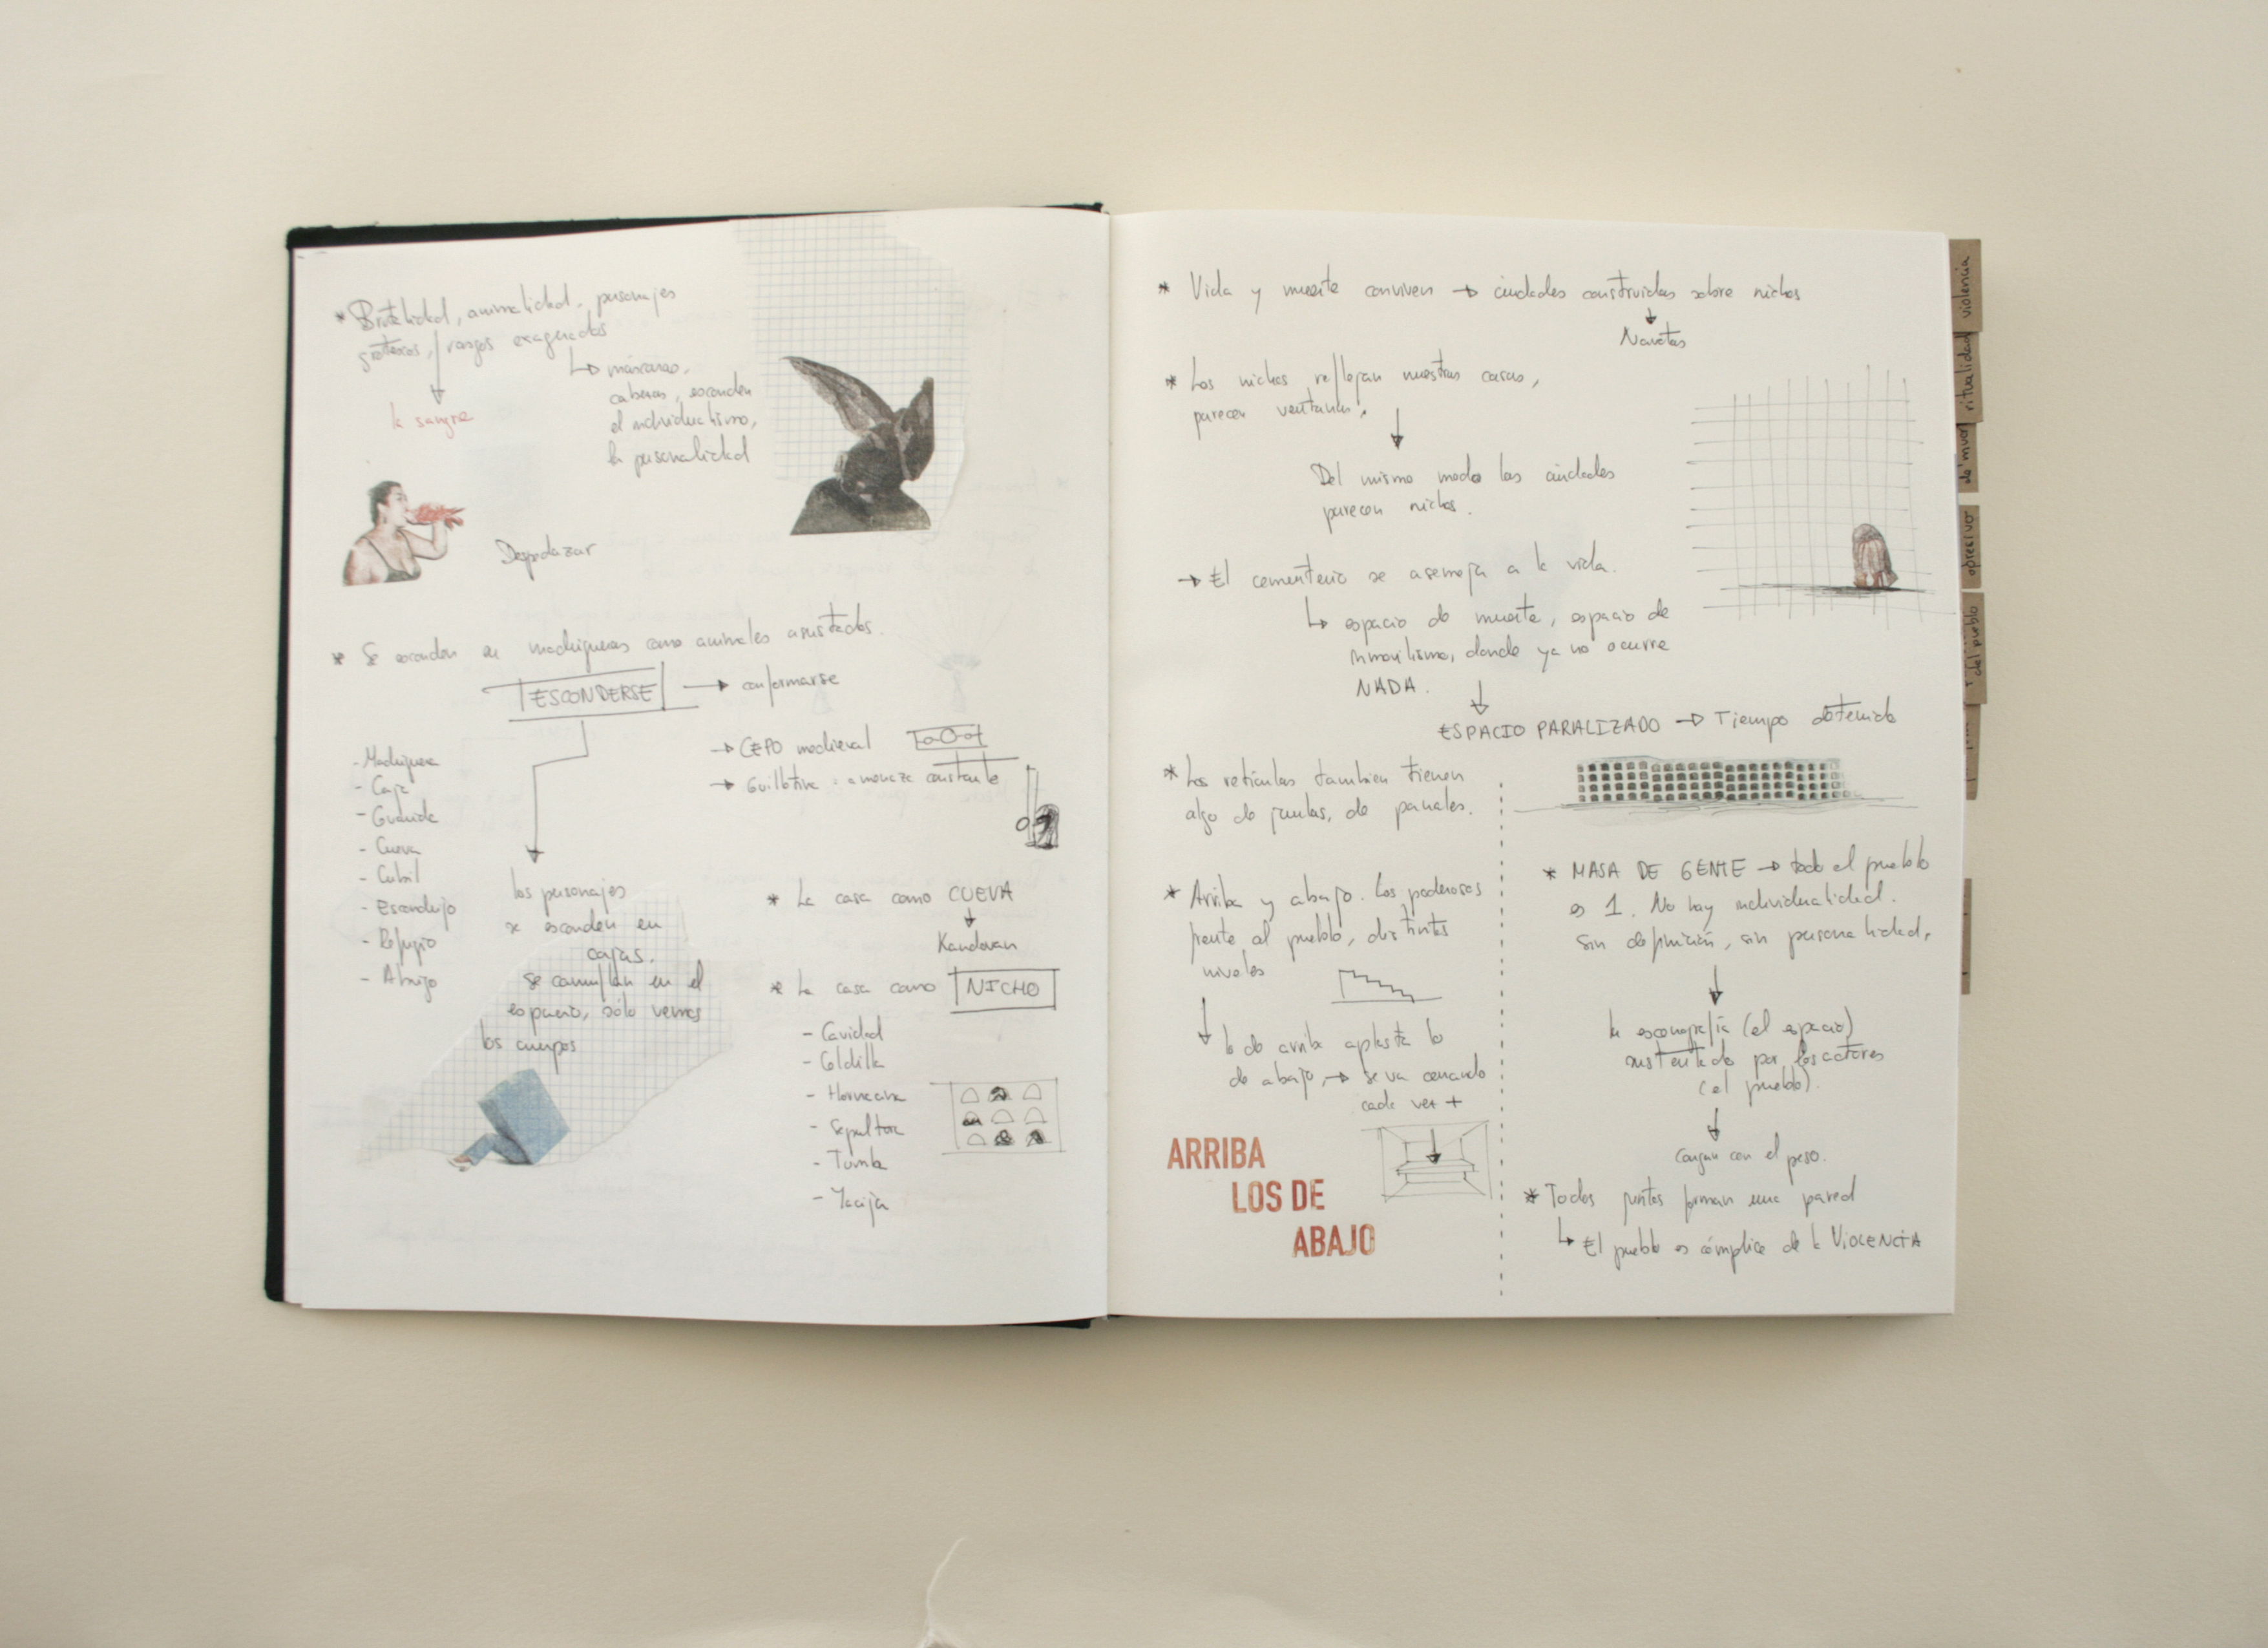 * Brutalidad, animalidad, personajes
grotescos, rasgos exagerados
↳ máscaras,
cabezas, esconden
el individualismo,
la personalidad
la sangre
Despedazar
* Se esconden en madrigueras como animales asustados.
ESCONDERSE → conformarse
- Madriguera
- Caja
- Guarida
- Cueva
- Cubil
- Escondrijo
- Refugio
- Abrigo
→ CEPO medieval
→ Guillotina : amenaza constante
los personajes
se esconden en
cajas.
se camuflan en el
espacio, sólo vemos
los cuerpos
* La casa como CUEVA
Kandovan
* La casa como NICHO
- Cavidad
- Celdilla
- Hornacina
- Sepultura
- Tumba
- Yacija
* Vida y muerte conviven → ciudades construidas sobre nichos
Navetas
* Los nichos reflejan nuestras casas,
parecen ventanas.
Del mismo modo las ciudades
parecen nichos.
→ El cementerio se asemeja a la vida.
↳ espacio de muerte, espacio de
inmovilismo, donde ya no ocurre
NADA.
ESPACIO PARALIZADO → Tiempo detenido
* Las retículas también tienen
algo de jaulas, de panales.
* Arriba y abajo. Los poderosos
frente al pueblo, distintos
niveles
lo de arriba aplasta lo
de abajo, → se va cerrando
cada vez +
ARRIBA
LOS DE
ABAJO
* MASA DE GENTE → todo el pueblo
es 1. No hay individualidad.
Sin definición, sin personalidad.
la escenografía (el espacio)
sustentado por los actores
(el pueblo).
Cargan con el peso.
* Todos juntos forman una pared
↳ El pueblo es cómplice de la VIOLENCIA
violencia
ritualidad
opresivo
del pueblo